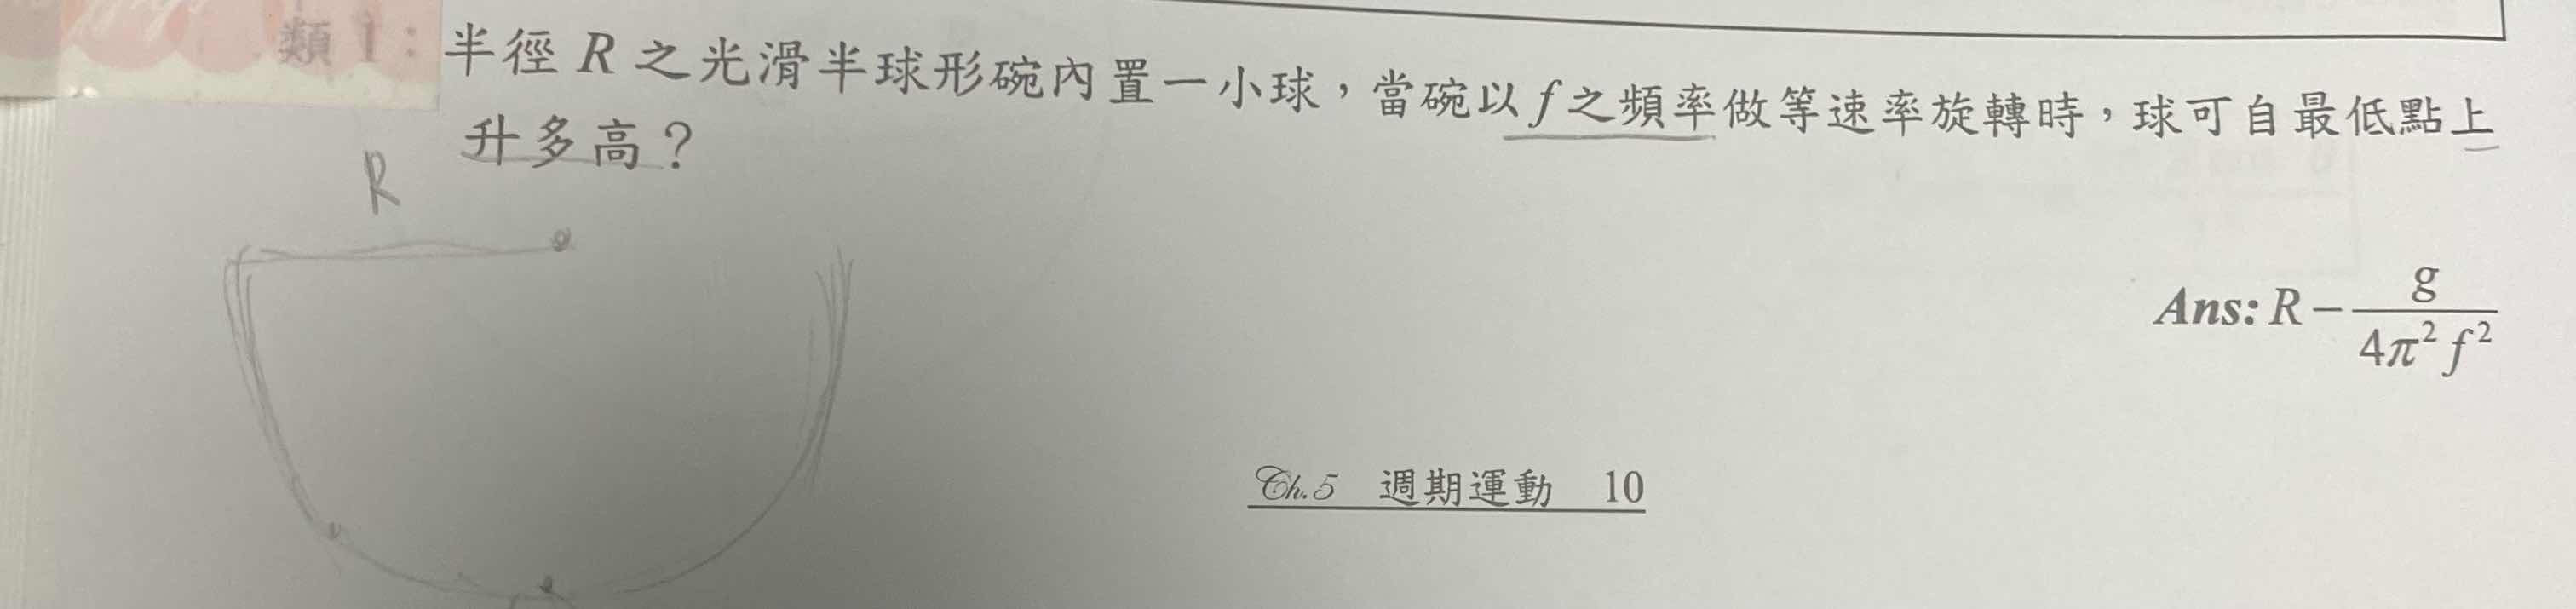 類1：半徑 R 之光滑半球形碗內置一小球，當碗以 f 之頻率做等速率旋轉時，球可自最低點上
升多高？
R
Ans: R − g / 4π² f²
Ch.5 週期運動 10